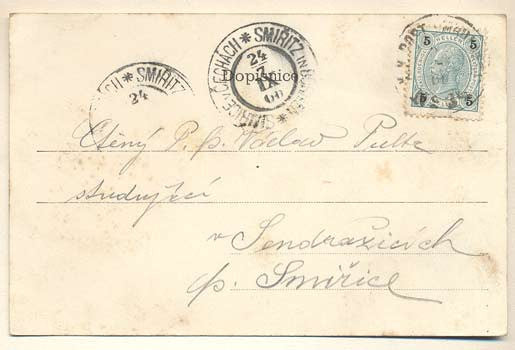 SMIRITZ IN BÖHMEN * SMIŘICE V ČECHÁCH *
24
IX
00
ČECHÁCH * SMIRITZ
24
Dopisnice
K.K. POST
5 5
5 5
Ctěný P. p. Václav Pultr
studující
v Sendražicích
p. Smiřice